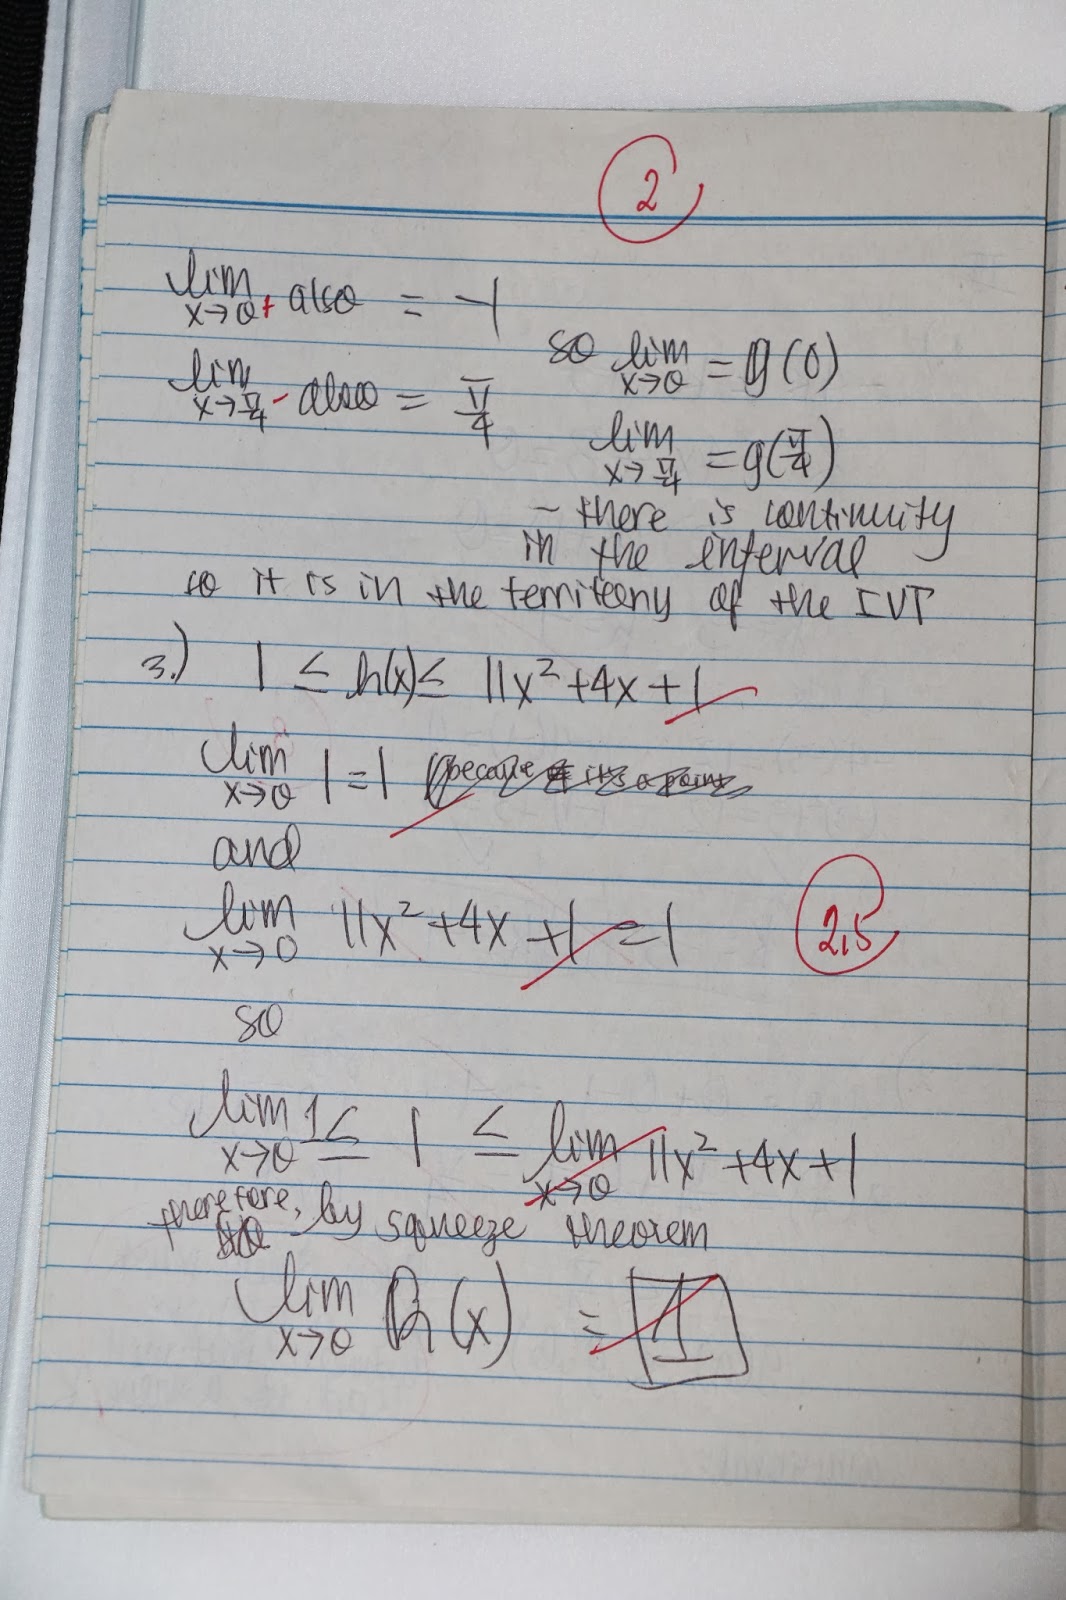 2
lim x→0+ also = -1
so lim x→0 = g(0)
lim x→π/4 - also = π/4
lim x→π/4 = g(π/4)
- there is continuity
in the interval
so it is in the territeony of the IVT
3.) 1 ≤ h(x) ≤ 11x² + 4x + 1
lim x→0 1 = 1 because it's a point
and
lim x→0 11x² + 4x + 1 = 1
2,5
so
lim x→0 1 ≤ 1 ≤ lim x→0 11x² + 4x + 1
therefore, by squeeze theorem
so
lim x→0 h(x) = 1